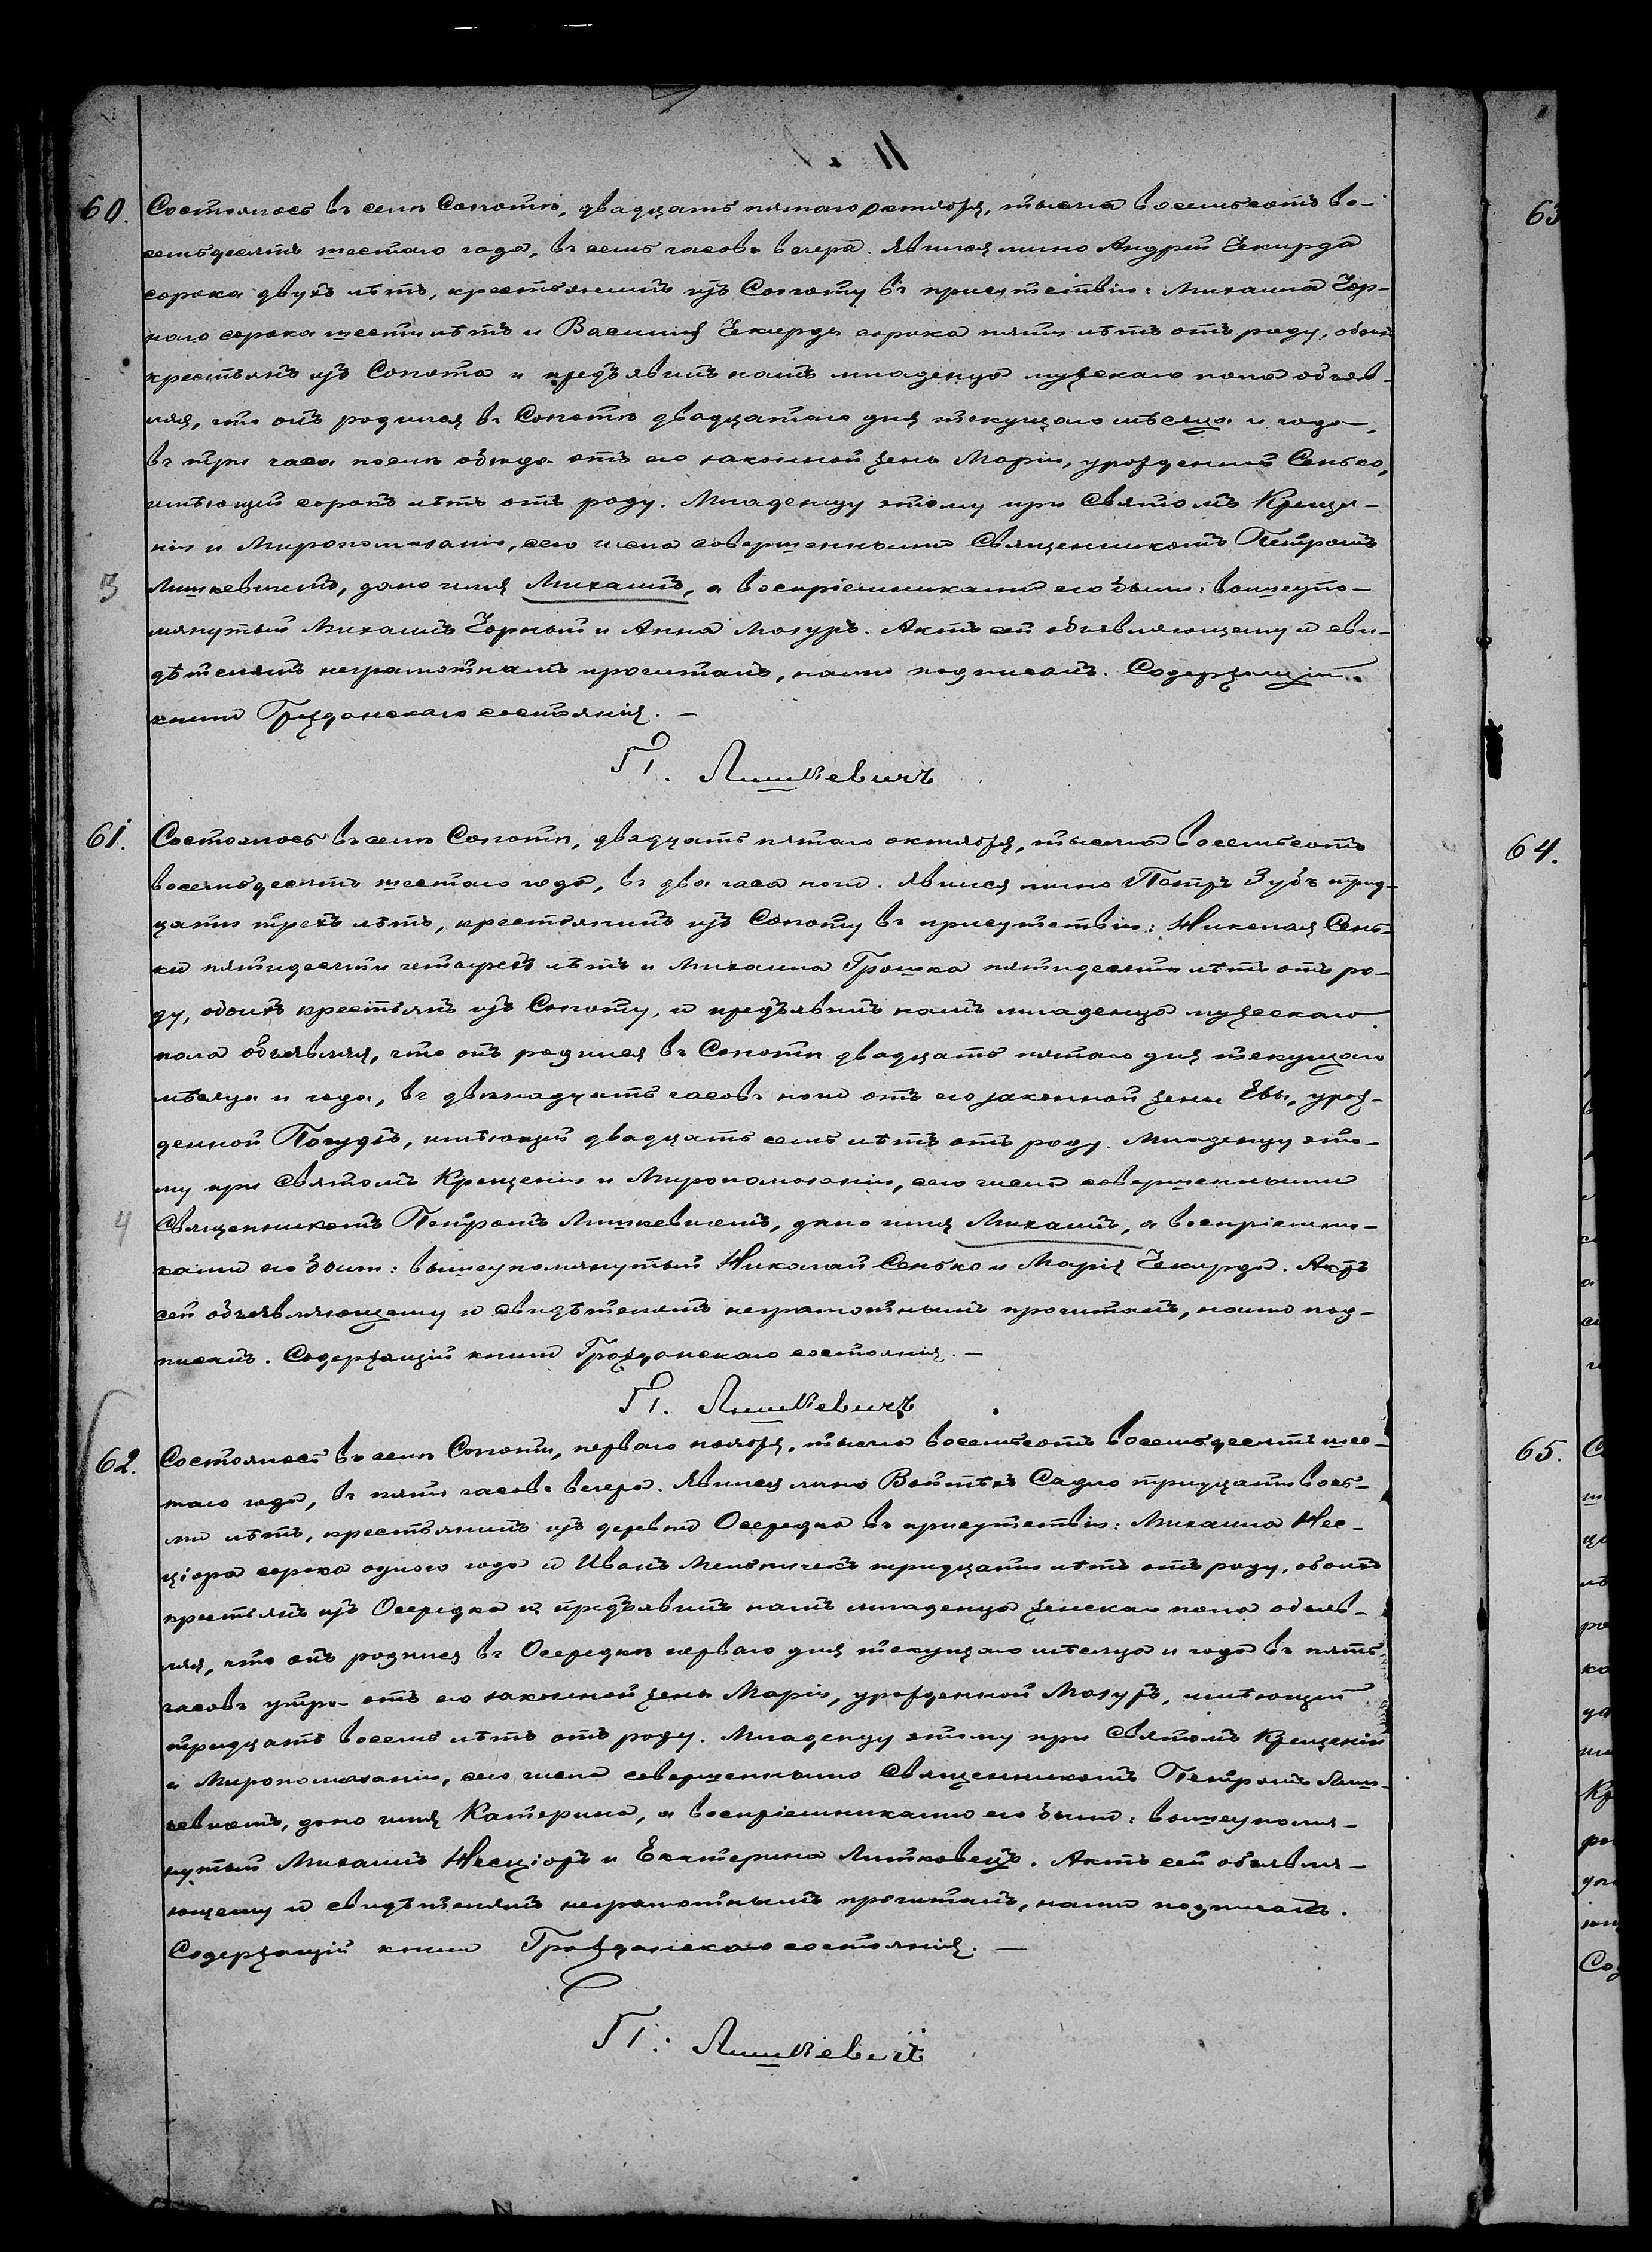 60. Состоялось въ селѣ Сопотѣ, двадцать пятаго октября, тысяча восемьсотъ во-
семьдесятъ шестаго года, въ семь часовъ вечера. Явился лично Андрей Чекирда
сорока двухъ лѣтъ, крестьянинъ изъ Сопоту въ присутствіи: Михаила Чор-
ного сорока шести лѣтъ и Василія Чекирды сорока пяти лѣтъ отъ роду, обоихъ
крестьянъ изъ Сопота и предъявилъ намъ младенца мужескаго пола объяв-
ляя, что онъ родился въ Сопотѣ двадцатаго дня текущаго мѣсяца и года,
въ три часа послѣ обѣда отъ его законной жены Маріи, урожденной Сенько,
имѣющей сорокъ лѣтъ отъ роду. Младенцу этому при Святомъ Креще-
ніи и Миропомазаніи, сего числа совершенными Священникомъ Петромъ
3 Лишкевичемъ, дано имя Михаилъ, а воспріемниками его были: вышеупо-
мянутый Михаилъ Чорный и Анна Мазуръ. Актъ сей объявляющему и сви-
дѣтелямъ неграмотнымъ прочитанъ, нами подписанъ. Содержащій
книги Гражданскаго состоянія. —
П. Лишкевичъ
61. Состоялось въ селѣ Сопотѣ, двадцать пятаго октября, тысяча восемьсотъ
восемьдесятъ шестаго года, въ два часа ночи. Явился лично Петръ Зубъ трид-
цати трехъ лѣтъ, крестьянинъ изъ Сопоту въ присутствіи: Николая Сень-
ки пятидесяти четырехъ лѣтъ и Михаила Грошка пятидесяти лѣтъ отъ ро-
ду, обоихъ крестьянъ изъ Сопоту, и предъявилъ намъ младенца мужескаго
пола объявляя, что онъ родился въ Сопотѣ двадцать пятаго дня текущаго
мѣсяца и года, въ двѣнадцать часовъ ночи отъ его законной жены Евы, урож-
денной имѣющей двадцать семь лѣтъ отъ роду. Младенцу это-
му при Святомъ Крещеніи и Миропомазаніи, сего числа совершенными
4 Священникомъ Петромъ Лишкевичемъ, дано имя Михаилъ, а воспріемни-
ками его были: вышеупомянутый Николай Сенько и Марія Чекирда. Актъ
сей объявляющему и свидѣтелямъ неграмотнымъ прочитанъ, нами под-
писанъ. Содержащій книги Гражданскаго состоянія. —
П. Лишкевичъ
62. Состоялось въ селѣ Сопоти, перваго ноября, тысяча восемьсотъ восемьдесятъ шес-
таго года, въ пять часовъ вечера. Явился лично Войтѣхъ Садло тридцати вось-
ми лѣтъ, крестьянинъ изъ деревни Осередка въ присутствіи: Михаила Нес-
ціора сорока одного года и Иванъ Мельничекъ тридцати лѣтъ отъ роду, обоихъ
крестьянъ изъ Осередка и предъявилъ намъ младенца женскаго пола объяв-
ляя, что онъ родился въ Осередкѣ перваго дня текущаго мѣсяца и года въ пять
часовъ утра отъ его законной жены Маріи, урожденной Мазуръ, имѣющей
тридцать восемь лѣтъ отъ роду. Младенцу этому при Святомъ Крещеніи
и Миропомазаніи, сего числа совершенными Священникомъ Петромъ Лиш-
кевичемъ, дано имя Катерина, а воспріемниками его были: вышеупомя-
нутый Михаилъ Несціоръ и Екатерина Литковецъ. Актъ сей объявля-
ющему и свидѣтелямъ неграмотнымъ прочитанъ, нами подписанъ.
Содержащій книги Гражданскаго состоянія. —
П. Лишкевичъ
63
64.
65.